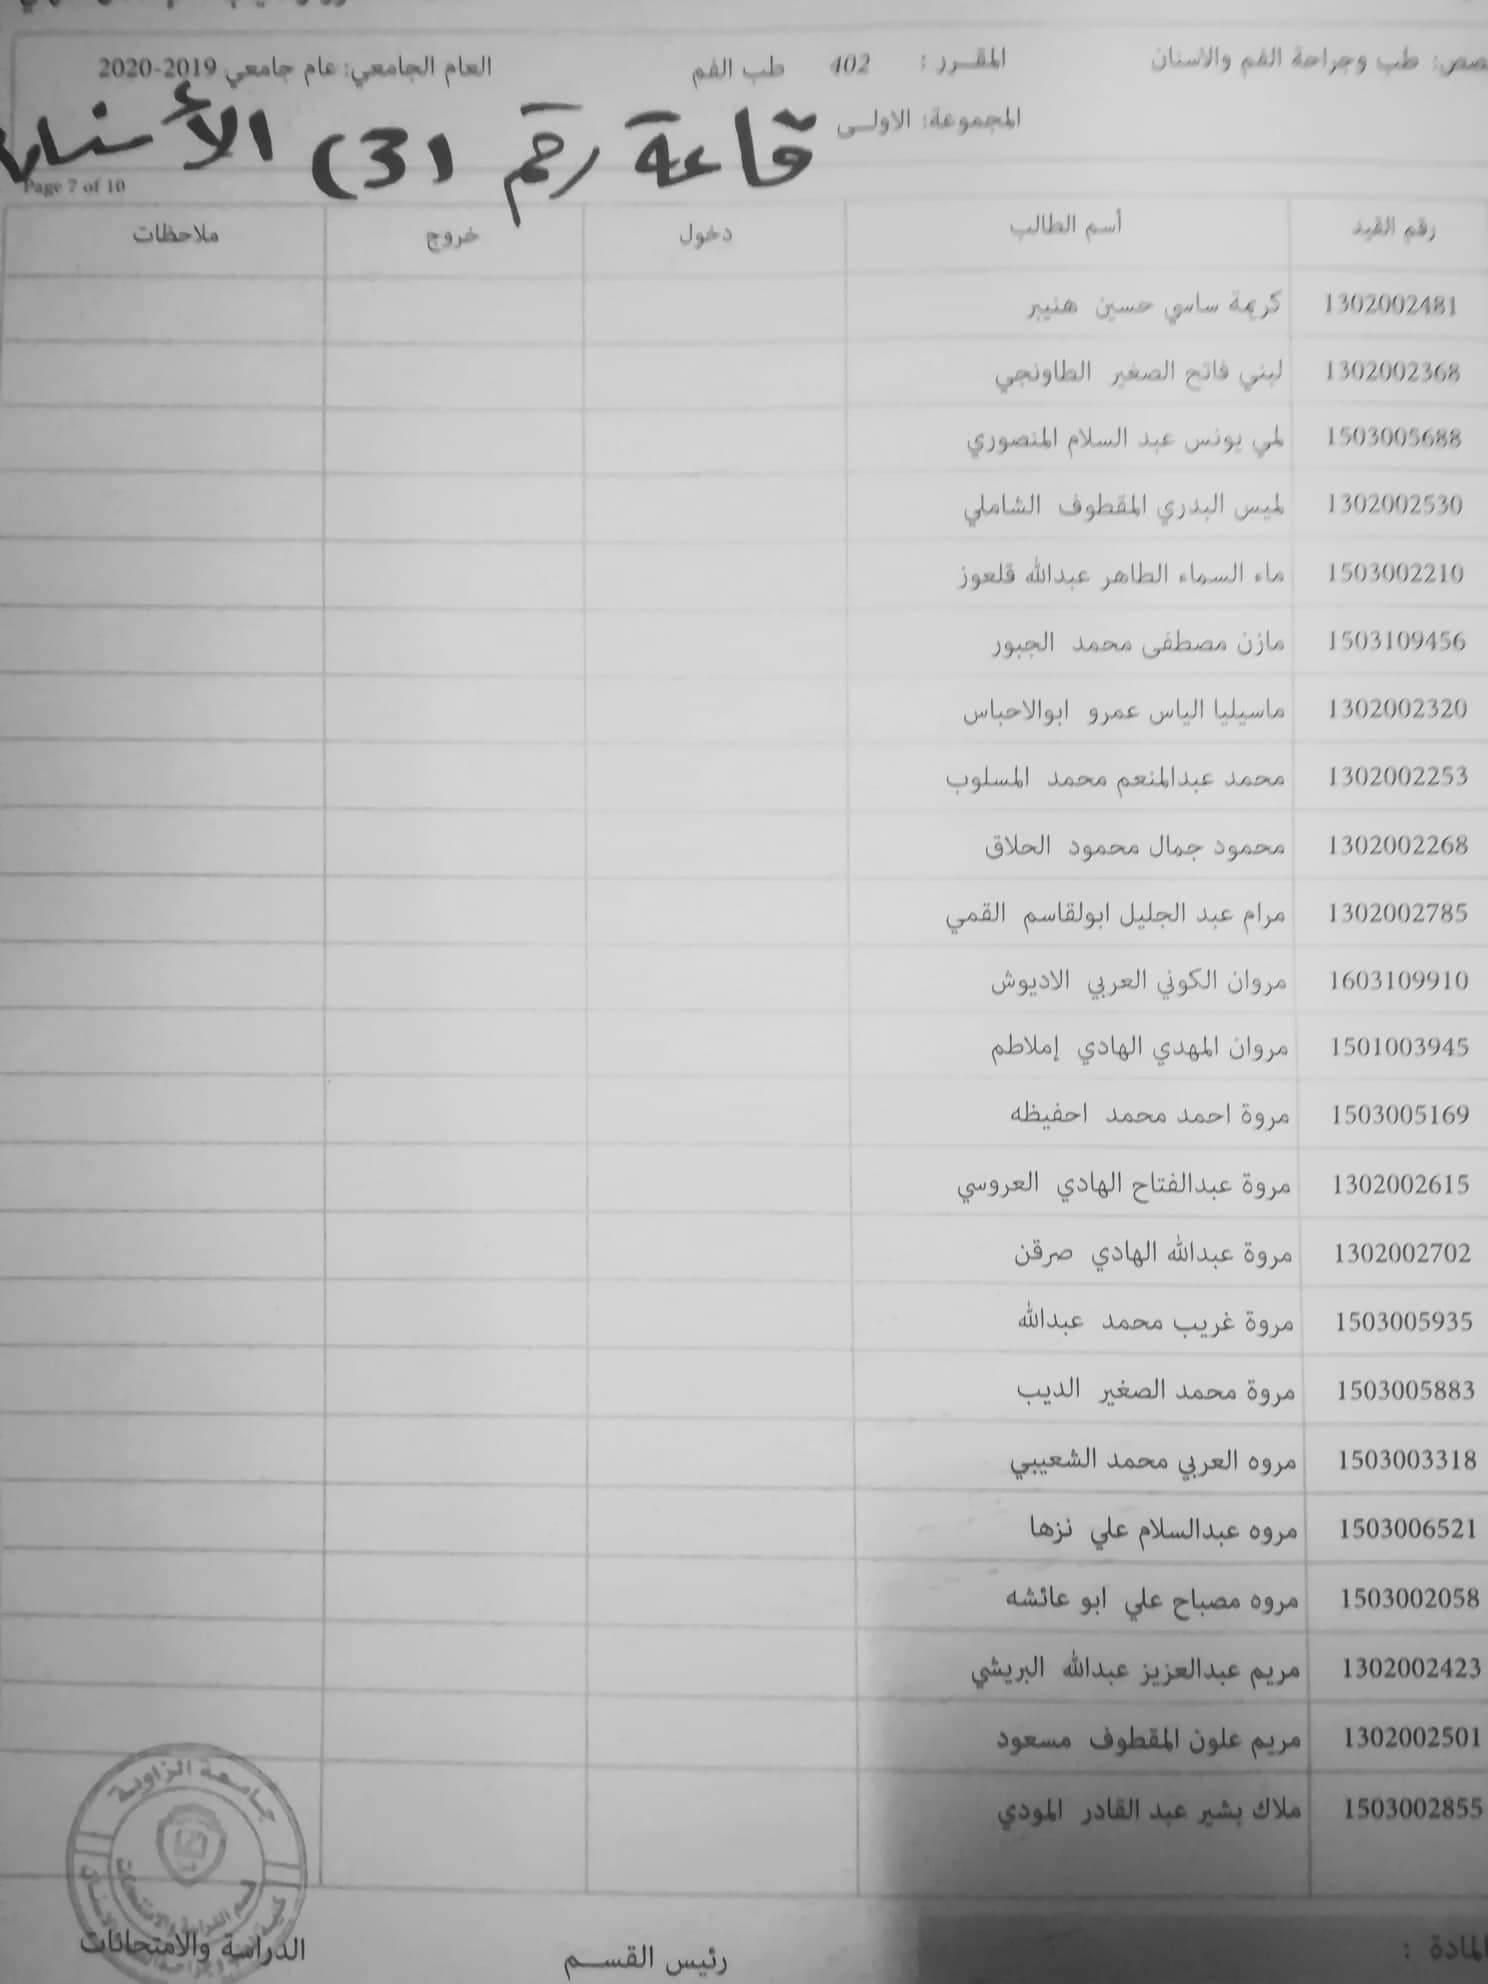 صص: طب وجراحة الفم والاسنان المقـرر : 402 طب الفم العام الجامعي: عام جامعي 2019-2020
المجموعة: الاولى
قاعة رقم (3) الأسنان
Page 7 of 10
رقم القيد أسم الطالب دخول خروج ملاحظات
1302002481 كريمة ساسي حسين هنيبر
1302002368 لبني فاتح الصغير الطاونجي
1503005688 لمي يونس عبد السلام المنصوري
1302002530 لميس البدري المقطوف الشاملي
1503002210 ماء السماء الطاهر عبدالله قلعوز
1503109456 مازن مصطفى محمد الجبور
1302002320 ماسيليا الياس عمرو ابوالاحباس
1302002253 محمد عبدالمنعم محمد المسلوب
1302002268 محمود جمال محمود الحلاق
1302002785 مرام عبد الجليل ابولقاسم القمي
1603109910 مروان الكوني العربي الاديوش
1501003945 مروان المهدي الهادي إملاطم
1503005169 مروة احمد محمد احفيظه
1302002615 مروة عبدالفتاح الهادي العروسي
1302002702 مروة عبدالله الهادي صرقن
1503005935 مروة غريب محمد عبدالله
1503005883 مروة محمد الصغير الديب
1503003318 مروه العربي محمد الشعيبي
1503006521 مروه عبدالسلام علي نزها
1503002058 مروه مصباح علي ابو عائشه
1302002423 مريم عبدالعزيز عبدالله البريشي
1302002501 مريم علون المقطوف مسعود
1503002855 ملاك بشير عبد القادر المودي
جامعة الزاوية
قسم الدراسة والامتحانات
المادة : رئيس القسم الدراسة والامتحانات